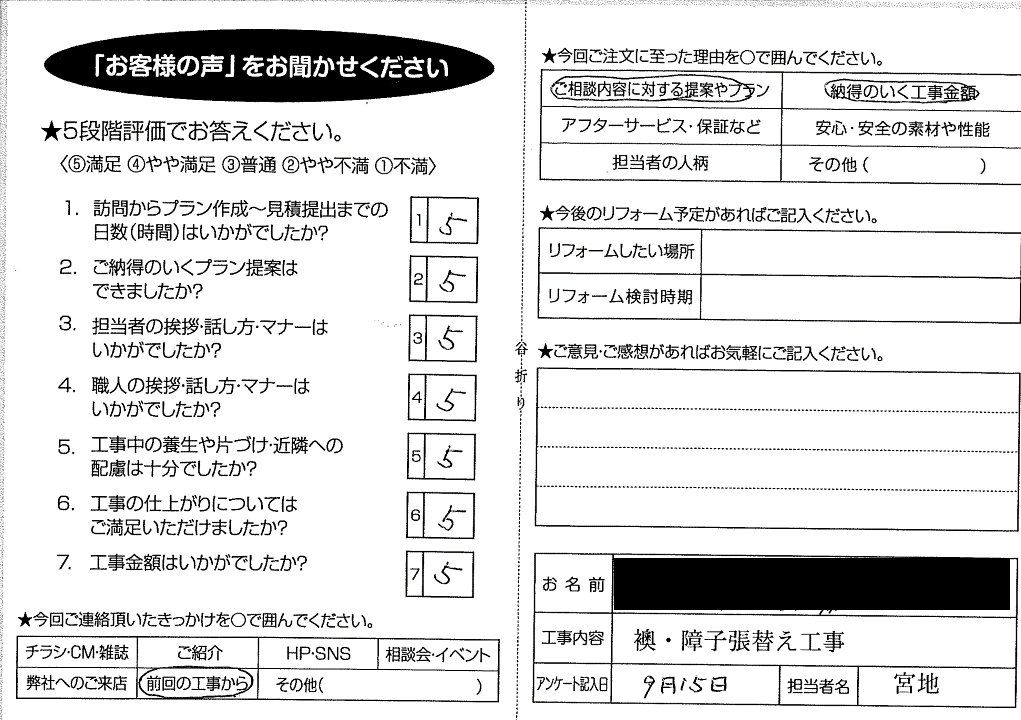 「お客様の声」をお聞かせください
★5段階評価でお答えください。
〈⑤満足 ④やや満足 ③普通 ②やや不満 ①不満〉
1. 訪問からプラン作成〜見積提出までの
日数(時間)はいかがでしたか?
1 5
2. ご納得のいくプラン提案は
できましたか?
2 5
3. 担当者の挨拶・話し方・マナーは
いかがでしたか?
3 5
4. 職人の挨拶・話し方・マナーは
いかがでしたか?
4 5
5. 工事中の養生や片づけ・近隣への
配慮は十分でしたか?
5 5
6. 工事の仕上がりについては
ご満足いただけましたか?
6 5
7. 工事金額はいかがでしたか?
7 5
★今回ご連絡頂いたきっかけを○で囲んでください。
チラシ・CM・雑誌 ご紹介 HP・SNS 相談会・イベント
弊社へのご来店 前回の工事から その他( )
谷折り
★今回ご注文に至った理由を○で囲んでください。
ご相談内容に対する提案やプラン 納得のいく工事金額
アフターサービス・保証など 安心・安全の素材や性能
担当者の人柄 その他( )
★今後のリフォーム予定があればご記入ください。
リフォームしたい場所
リフォーム検討時期
★ご意見・ご感想があればお気軽にご記入ください。
お名前
工事内容 襖・障子張替え工事
アンケート記入日 9月15日 担当者名 宮地